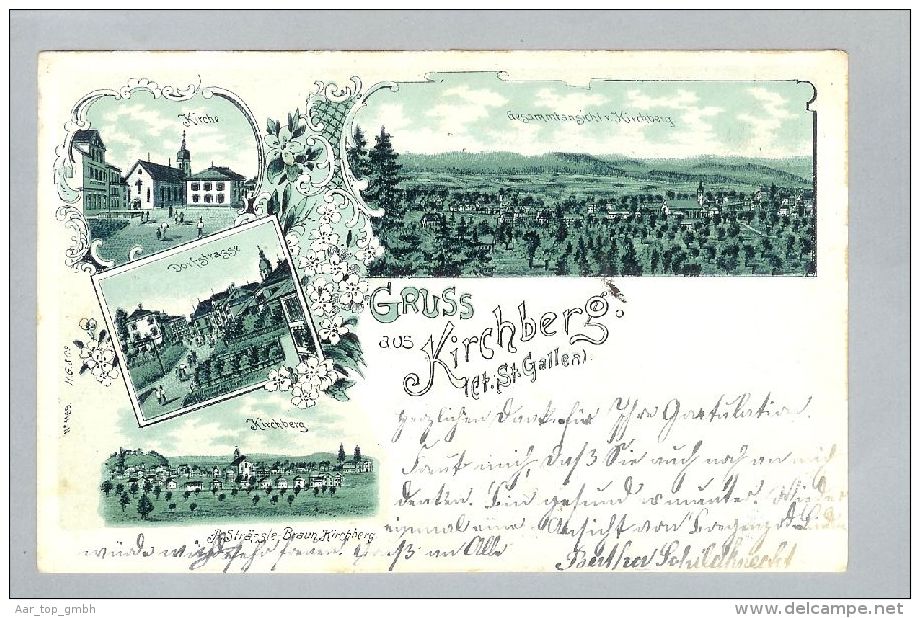 Kirche
Gesammtansicht v. Kirchberg
Dorfstrasse
Gruss
aus
Kirchberg.
(Ct. St. Gallen).
Kirchberg
Strässle-Braun, Kirchberg
herzlichen Dank für Ihre Gartulation.
Freut mich, daß Sie auch noch an mich
denken. Bin gesund &
einmal eine Ansicht von
würde mich sehr freuen. Gruß an Alle
Bertha Schildknecht
Aar_top_gmbh
www.delcampe.net